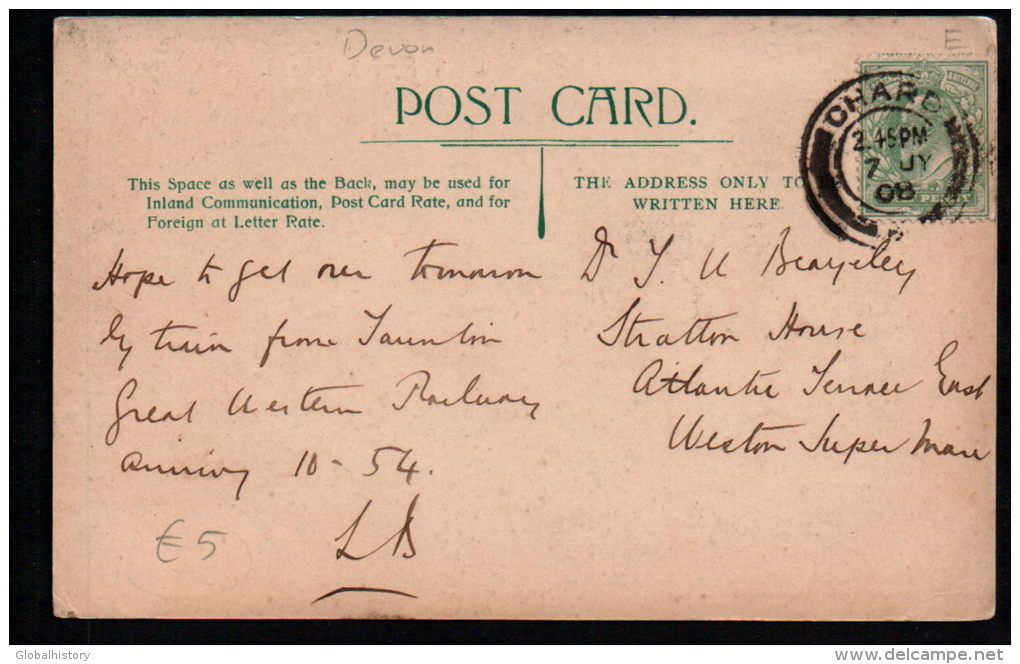 Devon
POST CARD.
This Space as well as the Back, may be used for
Inland Communication, Post Card Rate, and for
Foreign at Letter Rate.
THE ADDRESS ONLY TO
WRITTEN HERE.
CHARD
2.45PM
7 JY
08
Hope to get over tomorrow
by train from Taunton
Great Western Railway
arriving 10-54.
LB
Dr
Stratton House
Atlantic Terrace East
Weston Super Mare
€5
Globalhistory
www.delcampe.net